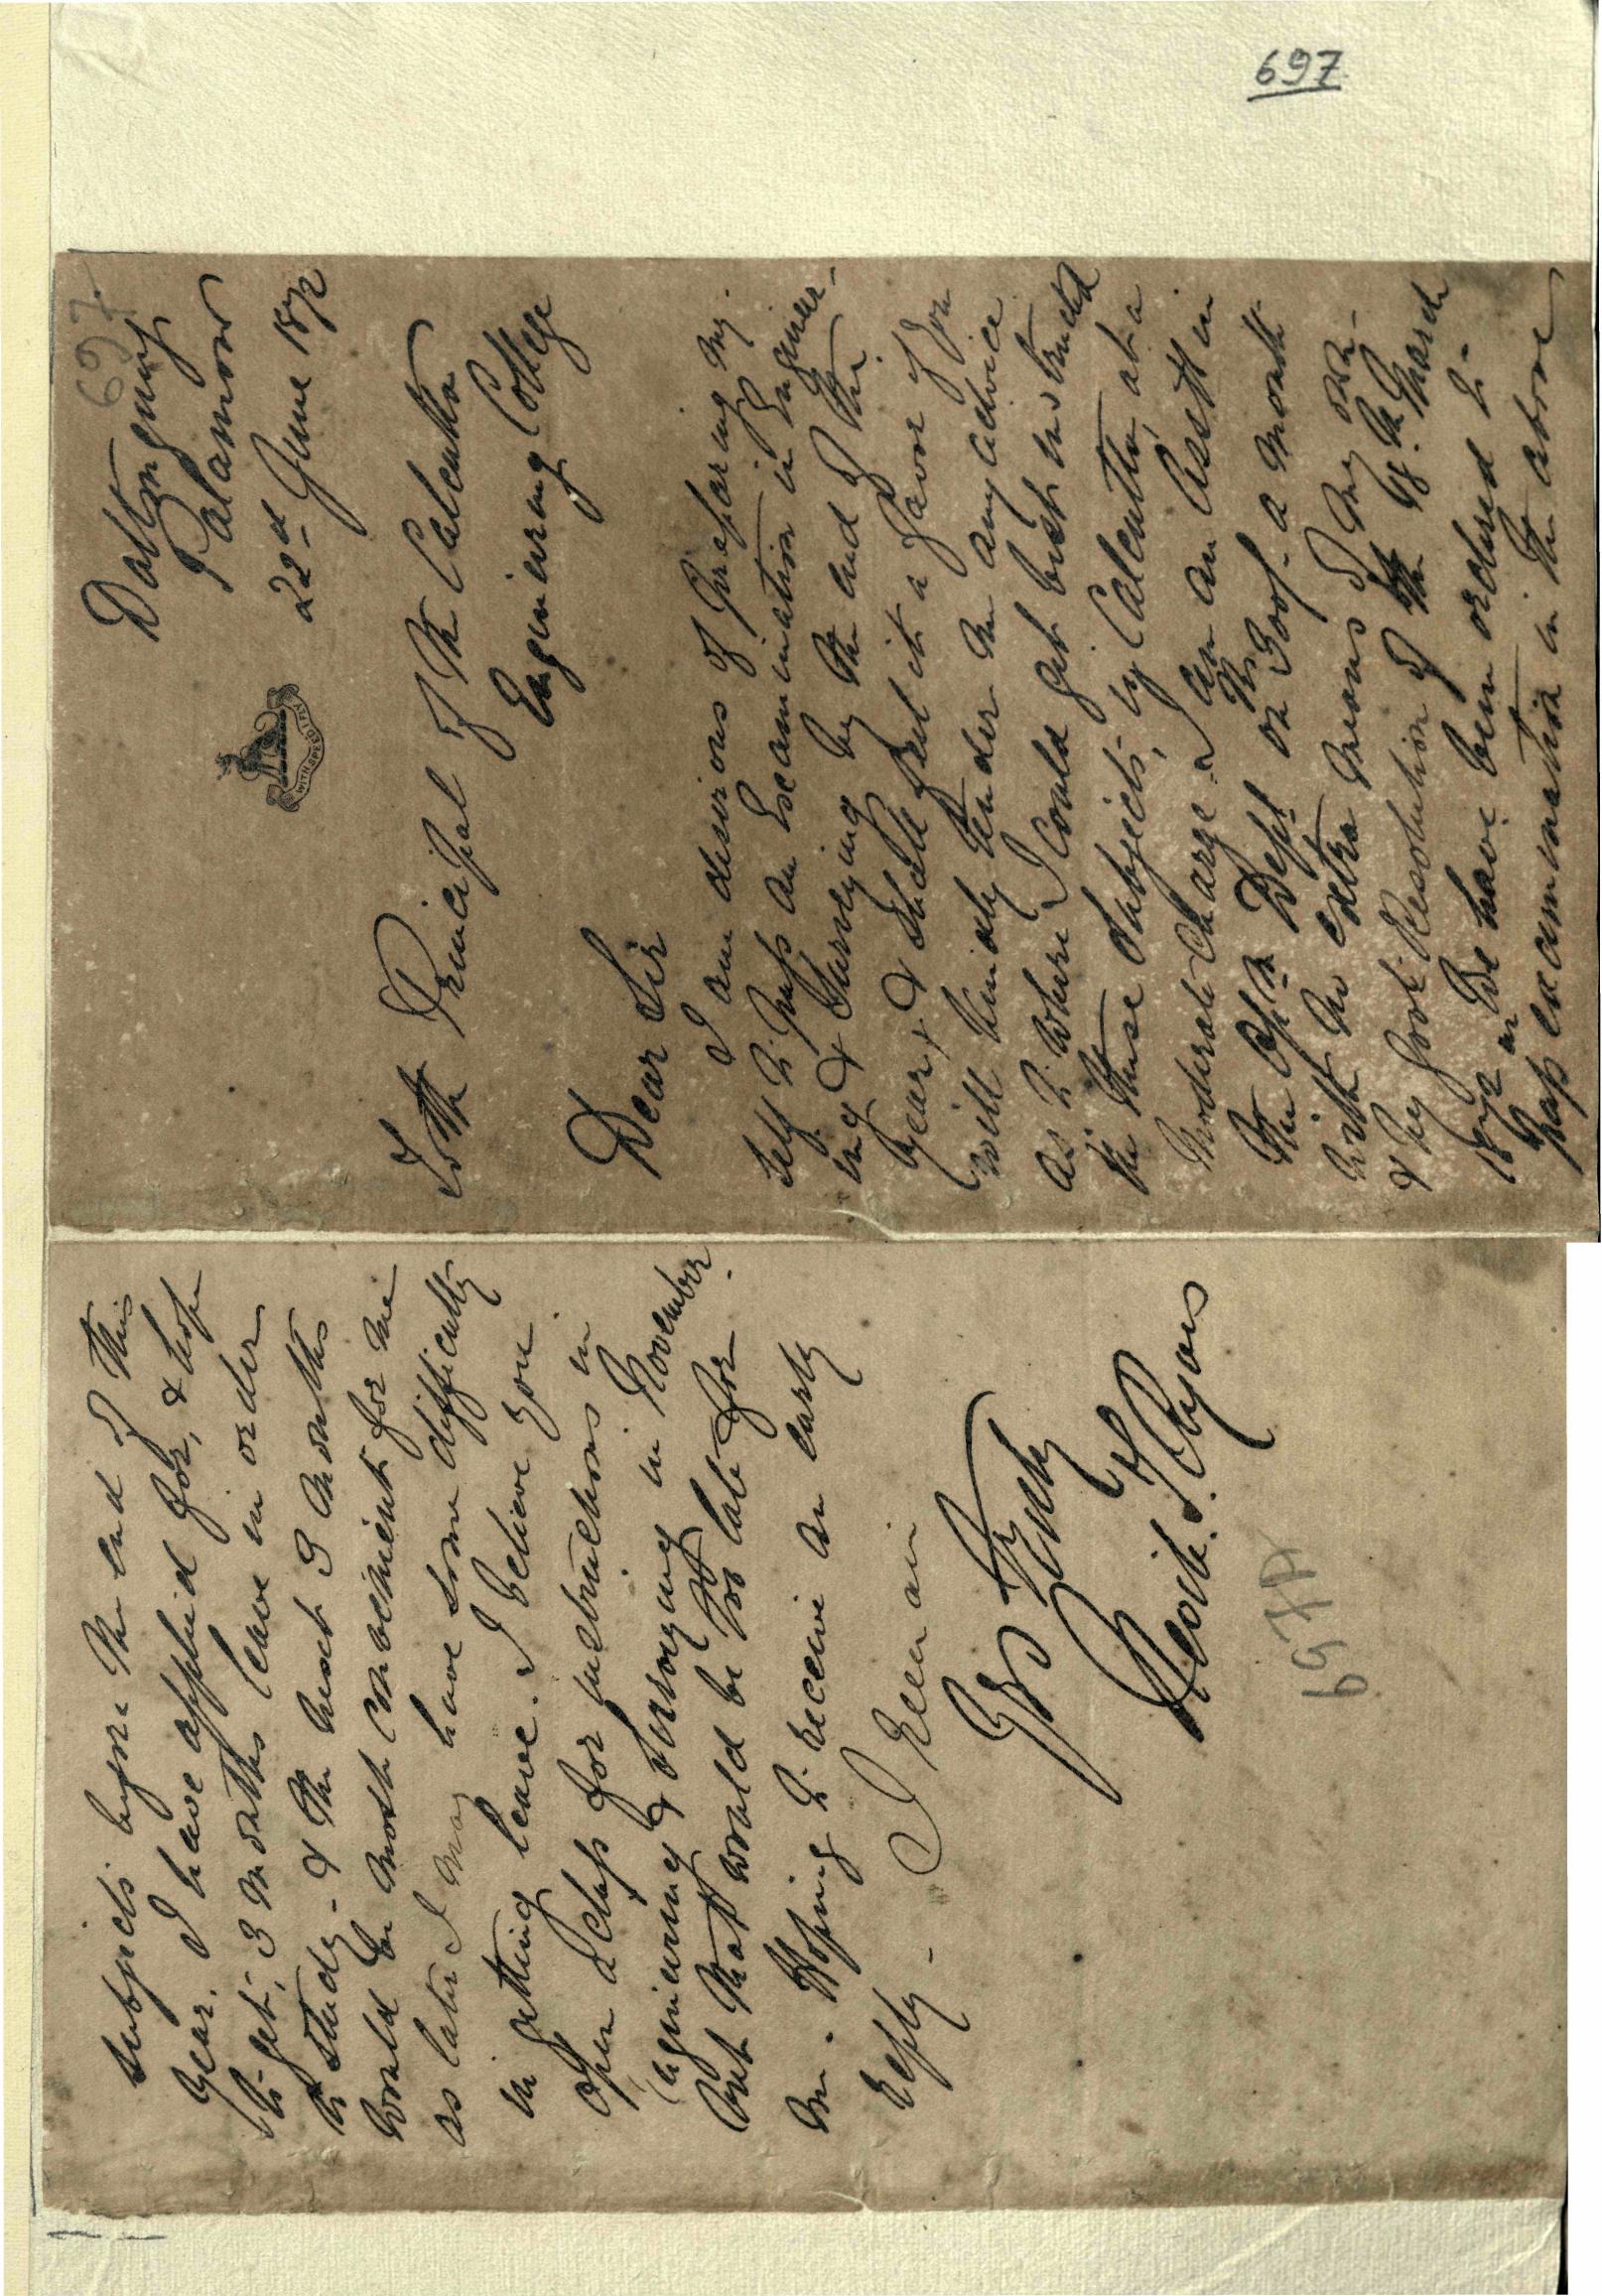 697
697
Daltongunj
Palamow
22nd June 1872
WITH SPEED I FLY
To the Principal of the Calcutta
Engineering College
Dear Sir
I am desirous of preparing my
self to pass an Examination in Engineer-
ing & Surveying by the end of the
year, & shall feel it a favor if you
will kindly tender me any advice
as to where I could get best instructed
in these subjects, in Calcutta, at a
moderate charge. I am an Asstt in
the Opm Dept on the Poor a month
with no extra means of my own -
& by Govt Resolution of the 18th March
1872 we have been ordered to
pass examination in the above
subjects before the end of this
year. I have applied for, & hope
to get, 3 months leave in order
to study - & the next 3 months
would be most convenient for me
as later I may have some difficulty
in getting leave. I believe you
open a class for instructions in
Engineering & Surveying in November.
but that would be too late for
me. Hoping to receive an early
reply - I remain
Yrs Truly
697A